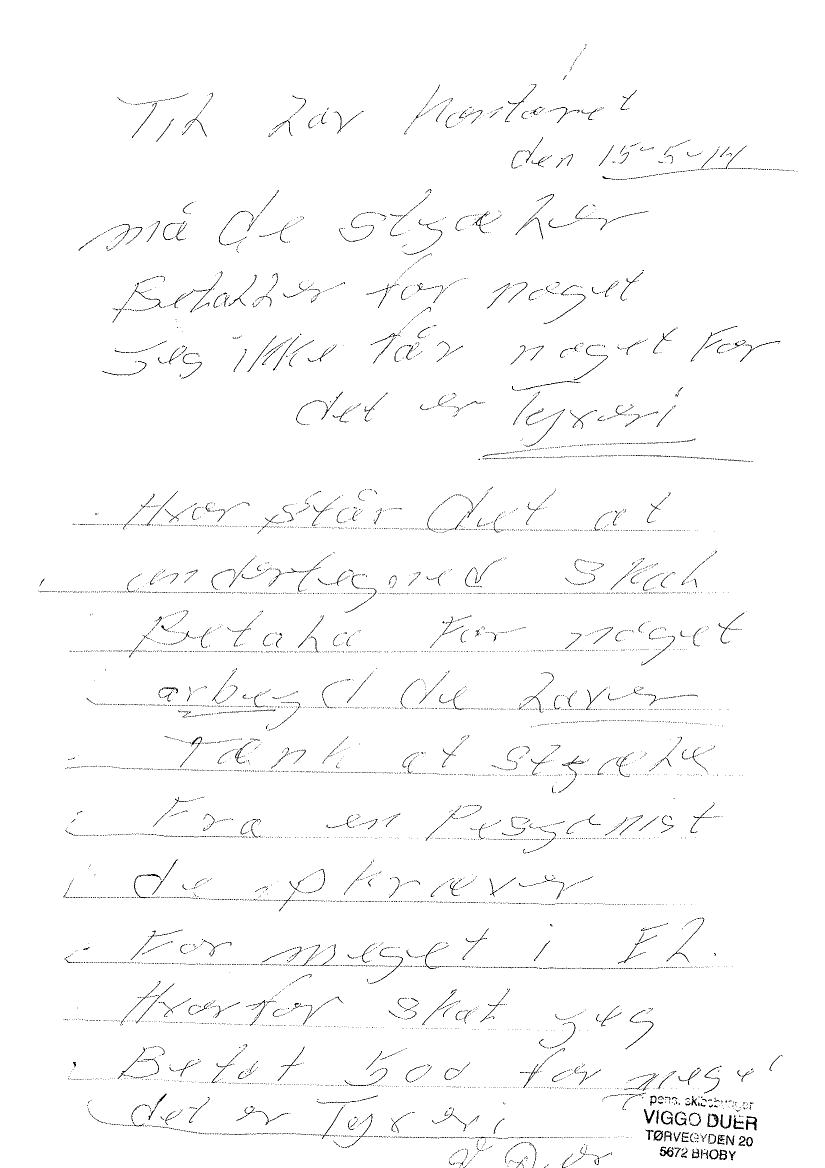 Til Lav Kontoret
den 15-5-14
må de styæler
Betaller for noget
jeg ikke får noget For
det er Tyveri
Hvor står det at
undertegned skal
Betala For noget
arbegd de Laver
Tænk at styæle
Fra en Pesyonist
de opkræver
For meget i El.
Hvorfor skal jeg
Betal 500 for meget
det er Tyveri
pens. skibsbygger
VIGGO DUER
TØRVEGYDEN 20
5672 BROBY
V Duer